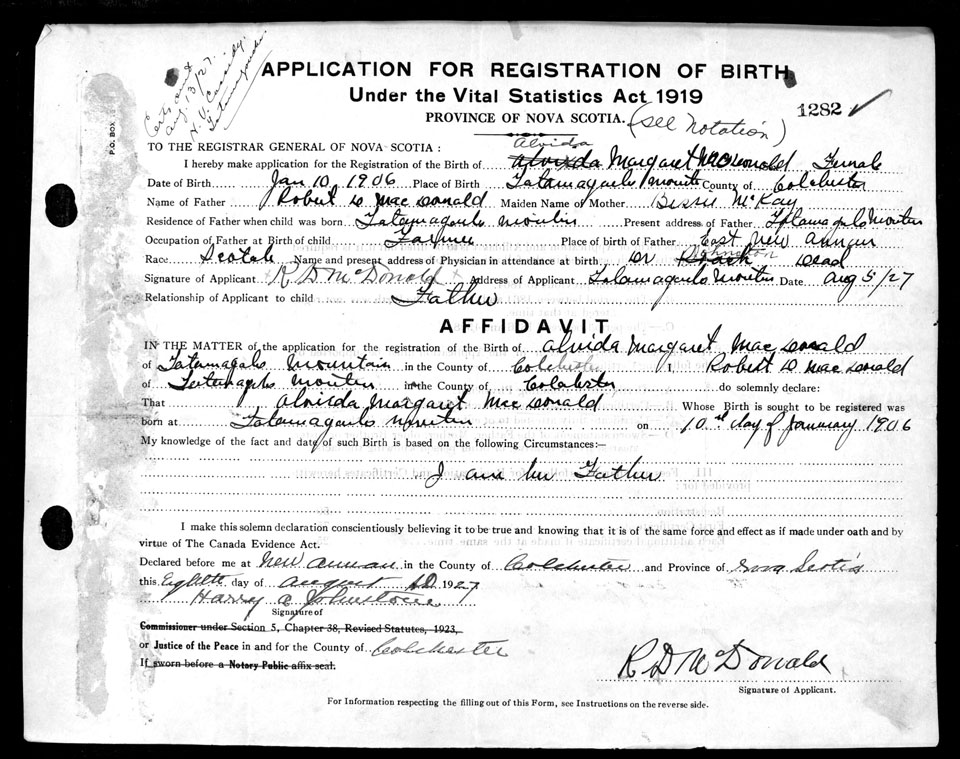 Certs sent
Aug 13/27.
H. V. Cassidy.
Tatamagouche
P.O. BOX
APPLICATION FOR REGISTRATION OF BIRTH
Under the Vital Statistics Act 1919
1282 ✓
PROVINCE OF NOVA SCOTIA. (see notation)
TO THE REGISTRAR GENERAL OF NOVA SCOTIA: Alvida
I hereby make application for the Registration of the Birth of Margaret MacDonald Female
Date of Birth Jan 10, 1906 Place of Birth Tatamagouche Mountn County of Colchester
Name of Father Robert D MacDonald Maiden Name of Mother Bessie McKay
Residence of Father when child was born Tatamagouche Mountn Present address of Father Tatamagouche Mountn
Occupation of Father at Birth of child Farmer Place of birth of Father East New Annan
Race Scotch Name and present address of Physician in attendance at birth Dr Johnston Dead
Signature of Applicant R D McDonald Address of Applicant Tatamagouche Mountn Date Aug 5/27
Relationship of Applicant to child Father
AFFIDAVIT
IN THE MATTER of the application for the registration of the Birth of Alvida Margaret MacDonald
of Tatamagouche Mountain in the County of Colchester I, Robert D MacDonald
of Tatamagouche Mountn in the County of Colchester do solemnly declare:
That Alvida Margaret MacDonald Whose Birth is sought to be registered was
born at Tatamagouche Mountn on 10th day of January 1906
My knowledge of the fact and date of such Birth is based on the following Circumstances:—
I am her Father
I make this solemn declaration conscientiously believing it to be true and knowing that it is of the same force and effect as if made under oath and by
virtue of The Canada Evidence Act.
Declared before me at New Annan in the County of Colchester and Province of Nova Scotia
this Eighth day of August AD 1927
Harry A Johnstone
Signature of
Commissioner under Section 5, Chapter 38, Revised Statutes, 1923,
or Justice of the Peace in and for the County of Colchester
If sworn before a Notary Public affix seal.
R D McDonald
Signature of Applicant.
For Information respecting the filling out of this Form, see Instructions on the reverse side.